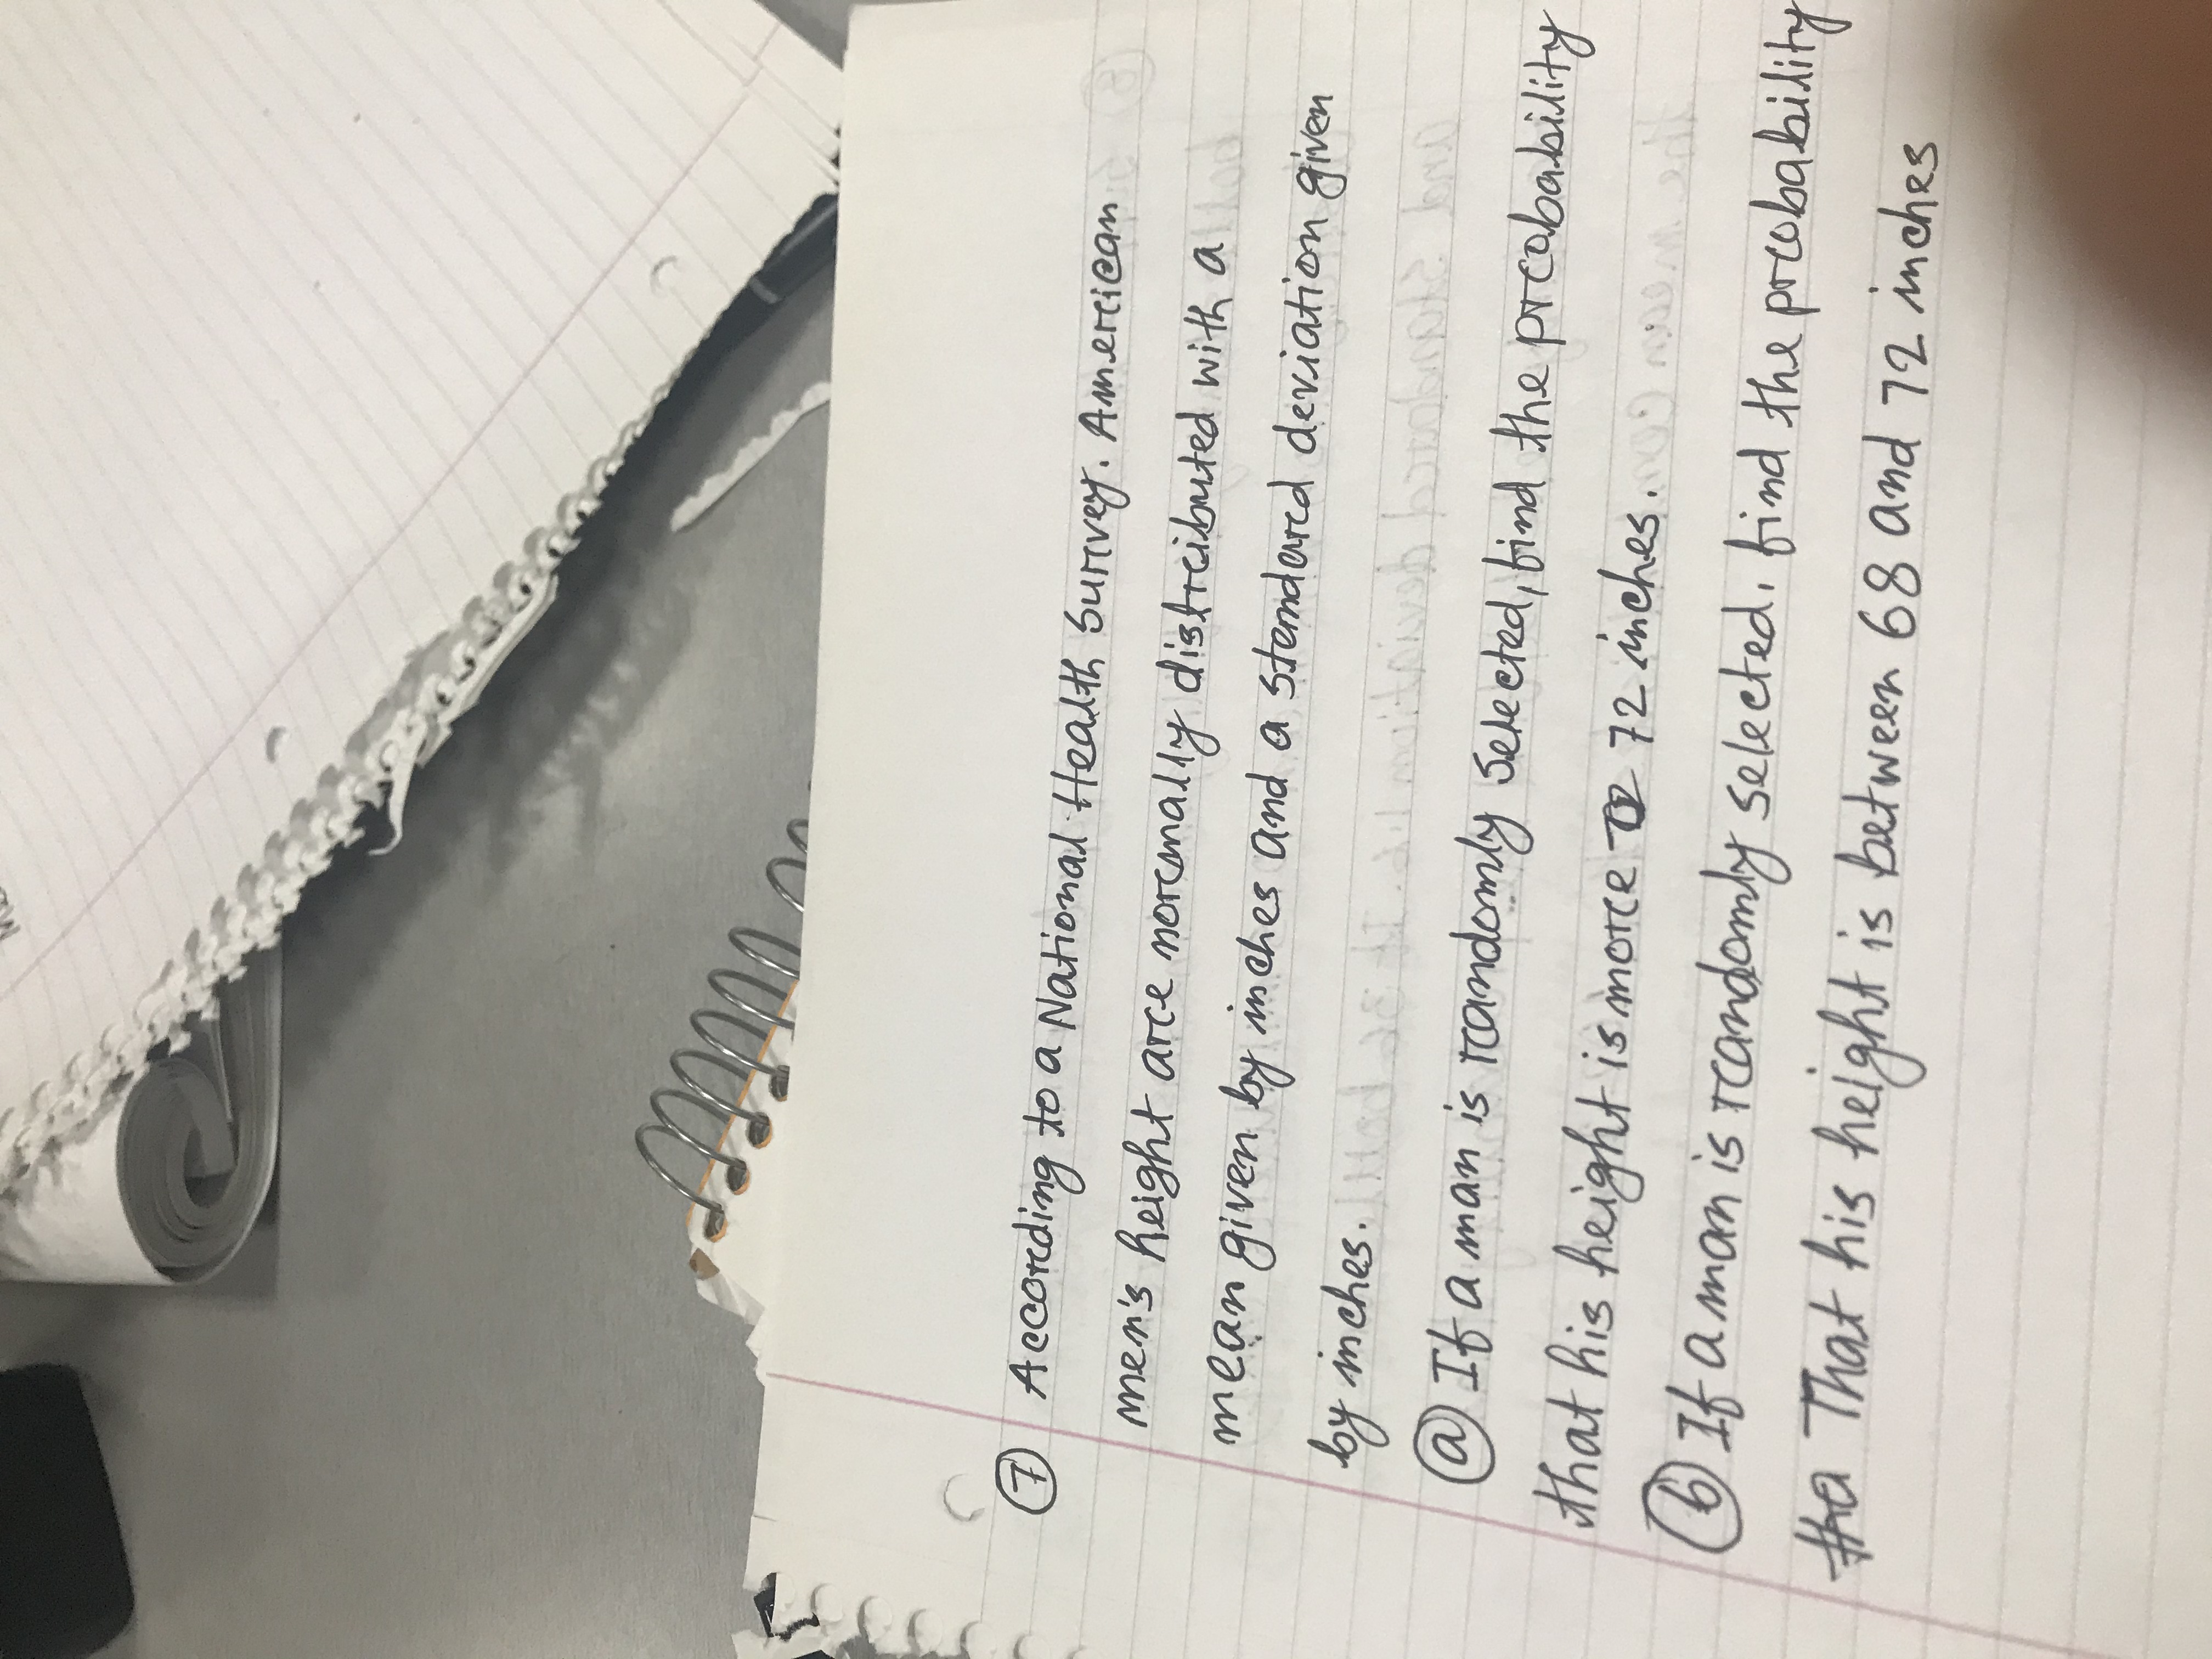 ⑦ According to a National Health Survey. American
men's height are normally distributed with a
mean given by inches and a standard deviation given
by inches.
ⓐ If a man is randomly selected, find the probability
that his height is more 72 inches.
ⓑ If a man is randomly selected. find the probability
That his height is between 68 and 72 inches